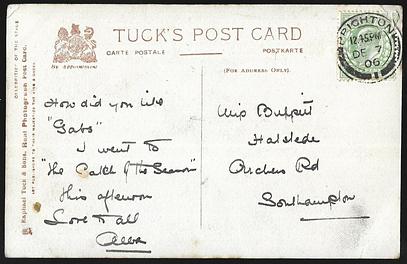 TUCK'S POST CARD
CARTE POSTALE
POSTKARTE
By Appointment
(FOR ADDRESS ONLY).
BRIGHTON
12.45PM
DE 7
06
1
CELEBRITIES OF THE STAGE
Raphael Tuck & Sons, Real Photograph Post Card.
How did you like
"Gabs"
I went to
"The Catch of the Season"
this afternoon
Love to all
Miss Bulpitt
Halstede
Archers Rd
Southampton